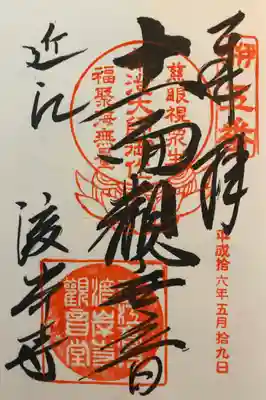 奉拝
平成拾六年五月拾九日
慈眼視衆生
福聚海無量
十一面觀世音
近江
渡岸寺
渡岸寺
觀音堂